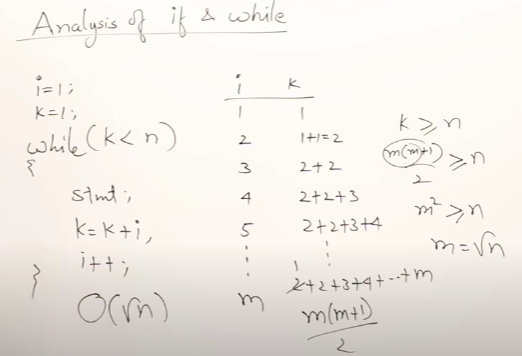 Analysis of if & while
i=1;
k=1;
while(k<n)
{
stmt;
k=k+i,
i++;
}
O(√n)
i k
1 1
2 1+1=2
3 2+2
4 2+2+3
5 2+2+3+4
⋮ ⋮
m 2+2+3+4+--+m
m(m+1)
2
k≥n
m(m+1) ≥n
2
m²≥n
m=√n